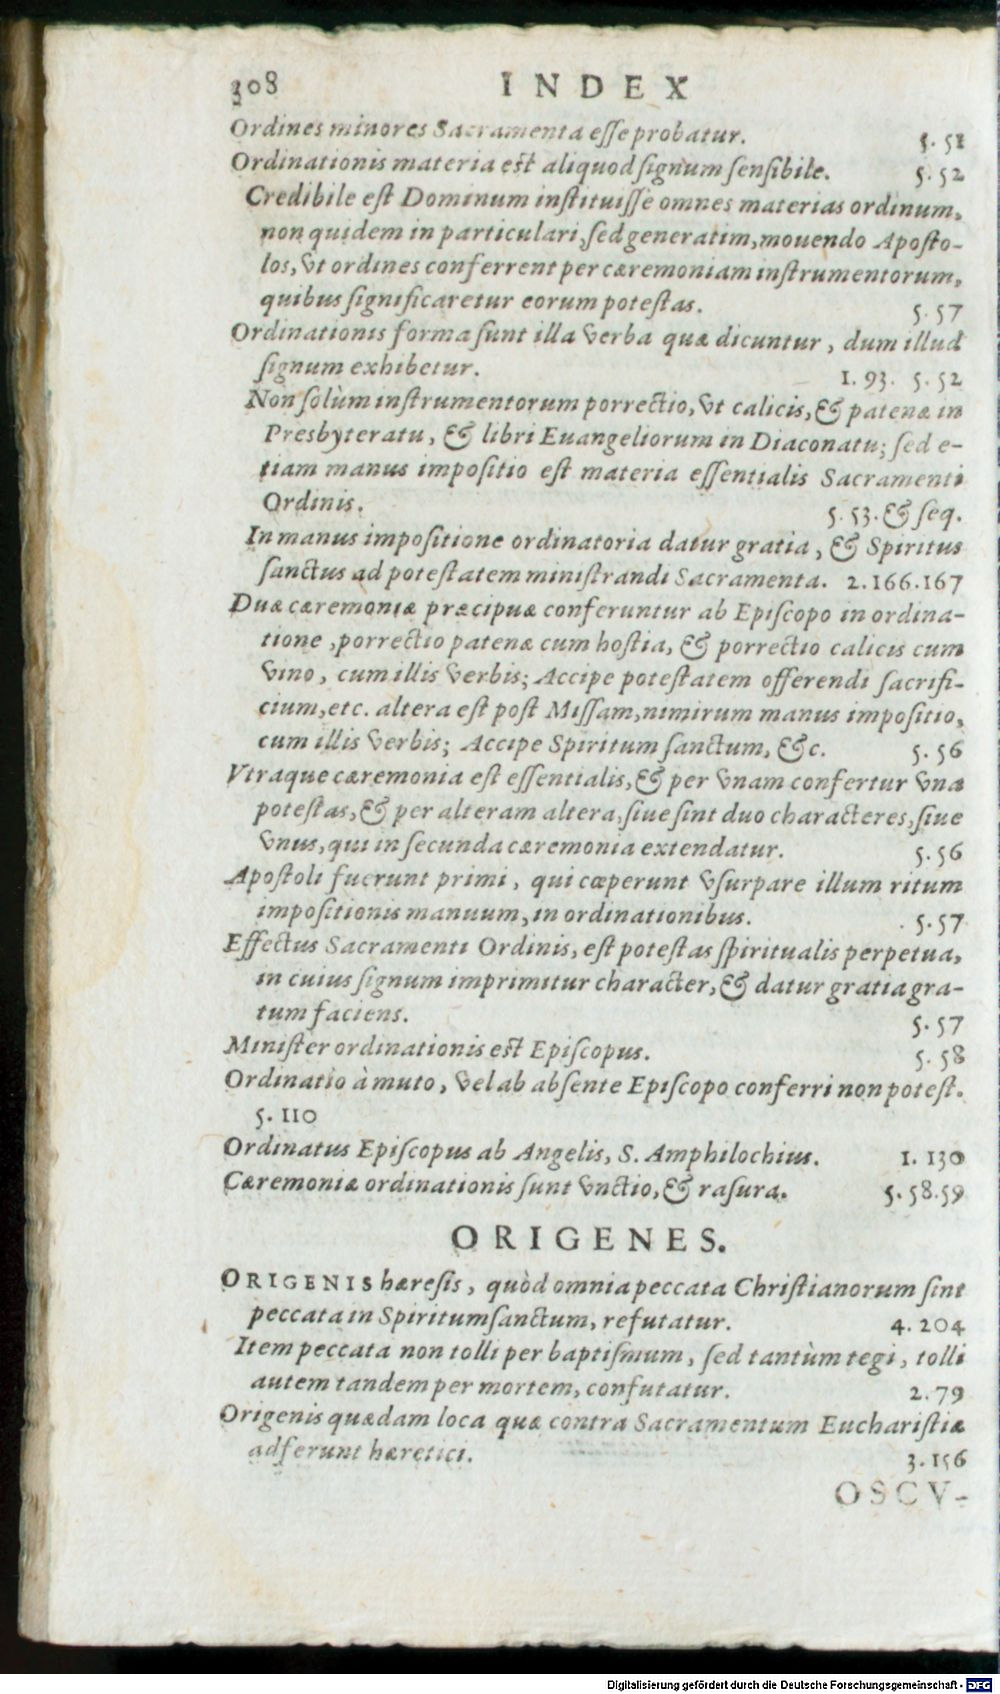 308 INDEX
Ordines minores Sacramenta eſſe probatur. 5. 51
Ordinationis materia eſt aliquod ſignum ſenſibile. 5. 52
Credibile eſt Dominum inſtituiſſe omnes materias ordinum,
non quidem in particulari, ſed generatim, mouendo Apoſto-
los, vt ordines conferrent per cæremoniam inſtrumentorum,
quibus ſignificaretur eorum poteſtas. 5. 57
Ordinationis forma ſunt illa verba quæ dicuntur, dum illud
ſignum exhibetur. 1. 93. 5. 52
Non ſolùm inſtrumentorum porrectio, vt calicis, & patenæ in
Presbyteratu, & libri Euangeliorum in Diaconatu; ſed e-
tiam manus impoſitio eſt materia eſſentialis Sacramenti
Ordinis. 5. 53. & ſeq.
In manus impoſitione ordinatoria datur gratia, & Spiritus
ſanctus ad poteſtatem miniſtrandi Sacramenta. 2. 166. 167
Duæ cæremoniæ præcipuæ conferuntur ab Epiſcopo in ordina-
tione, porrectio patenæ cum hoſtia, & porrectio calicis cum
vino, cum illis verbis; Accipe poteſtatem offerendi ſacrifi-
cium, etc. altera eſt poſt Miſſam, nimirum manus impoſitio,
cum illis verbis; Accipe Spiritum ſanctum, &c. 5. 56
Vtraque cæremonia eſt eſſentialis, & per vnam confertur vna
poteſtas, & per alteram altera, ſiue ſint duo characteres, ſiue
vnus, qui in ſecunda cæremonia extendatur. 5. 56
Apoſtoli fuerunt primi, qui cœperunt vſurpare illum ritum
impoſitionis manuum, in ordinationibus. 5. 57
Effectus Sacramenti Ordinis, eſt poteſtas ſpiritualis perpetua,
in cuius ſignum imprimitur character, & datur gratia gra-
tum faciens. 5. 57
Miniſter ordinationis eſt Epiſcopus. 5. 58
Ordinatio à muto, vel ab abſente Epiſcopo conferri non poteſt.
5. 110
Ordinatus Epiſcopus ab Angelis, S. Amphilochius. 1. 130
Cæremoniæ ordinationis ſunt vnctio, & raſura. 5. 58. 59
ORIGENES.
ORIGENIS hæreſis, quòd omnia peccata Chriſtianorum ſint
peccata in Spiritumſanctum, refutatur. 4. 204
Item peccata non tolli per baptiſmum, ſed tantùm tegi, tolli
autem tandem per mortem, confutatur. 2. 79
Origenis quædam loca quæ contra Sacramentum Euchariſtiæ
adferunt hæretici. 3. 156
OSCV-
Digitalisierung gefördert durch die Deutsche Forschungsgemeinschaft - DFG